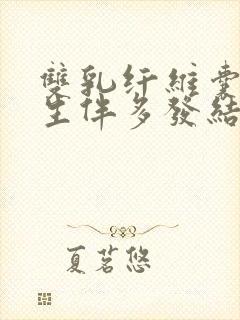 雙乳纤維囊
生伴多發結
夏茗悠